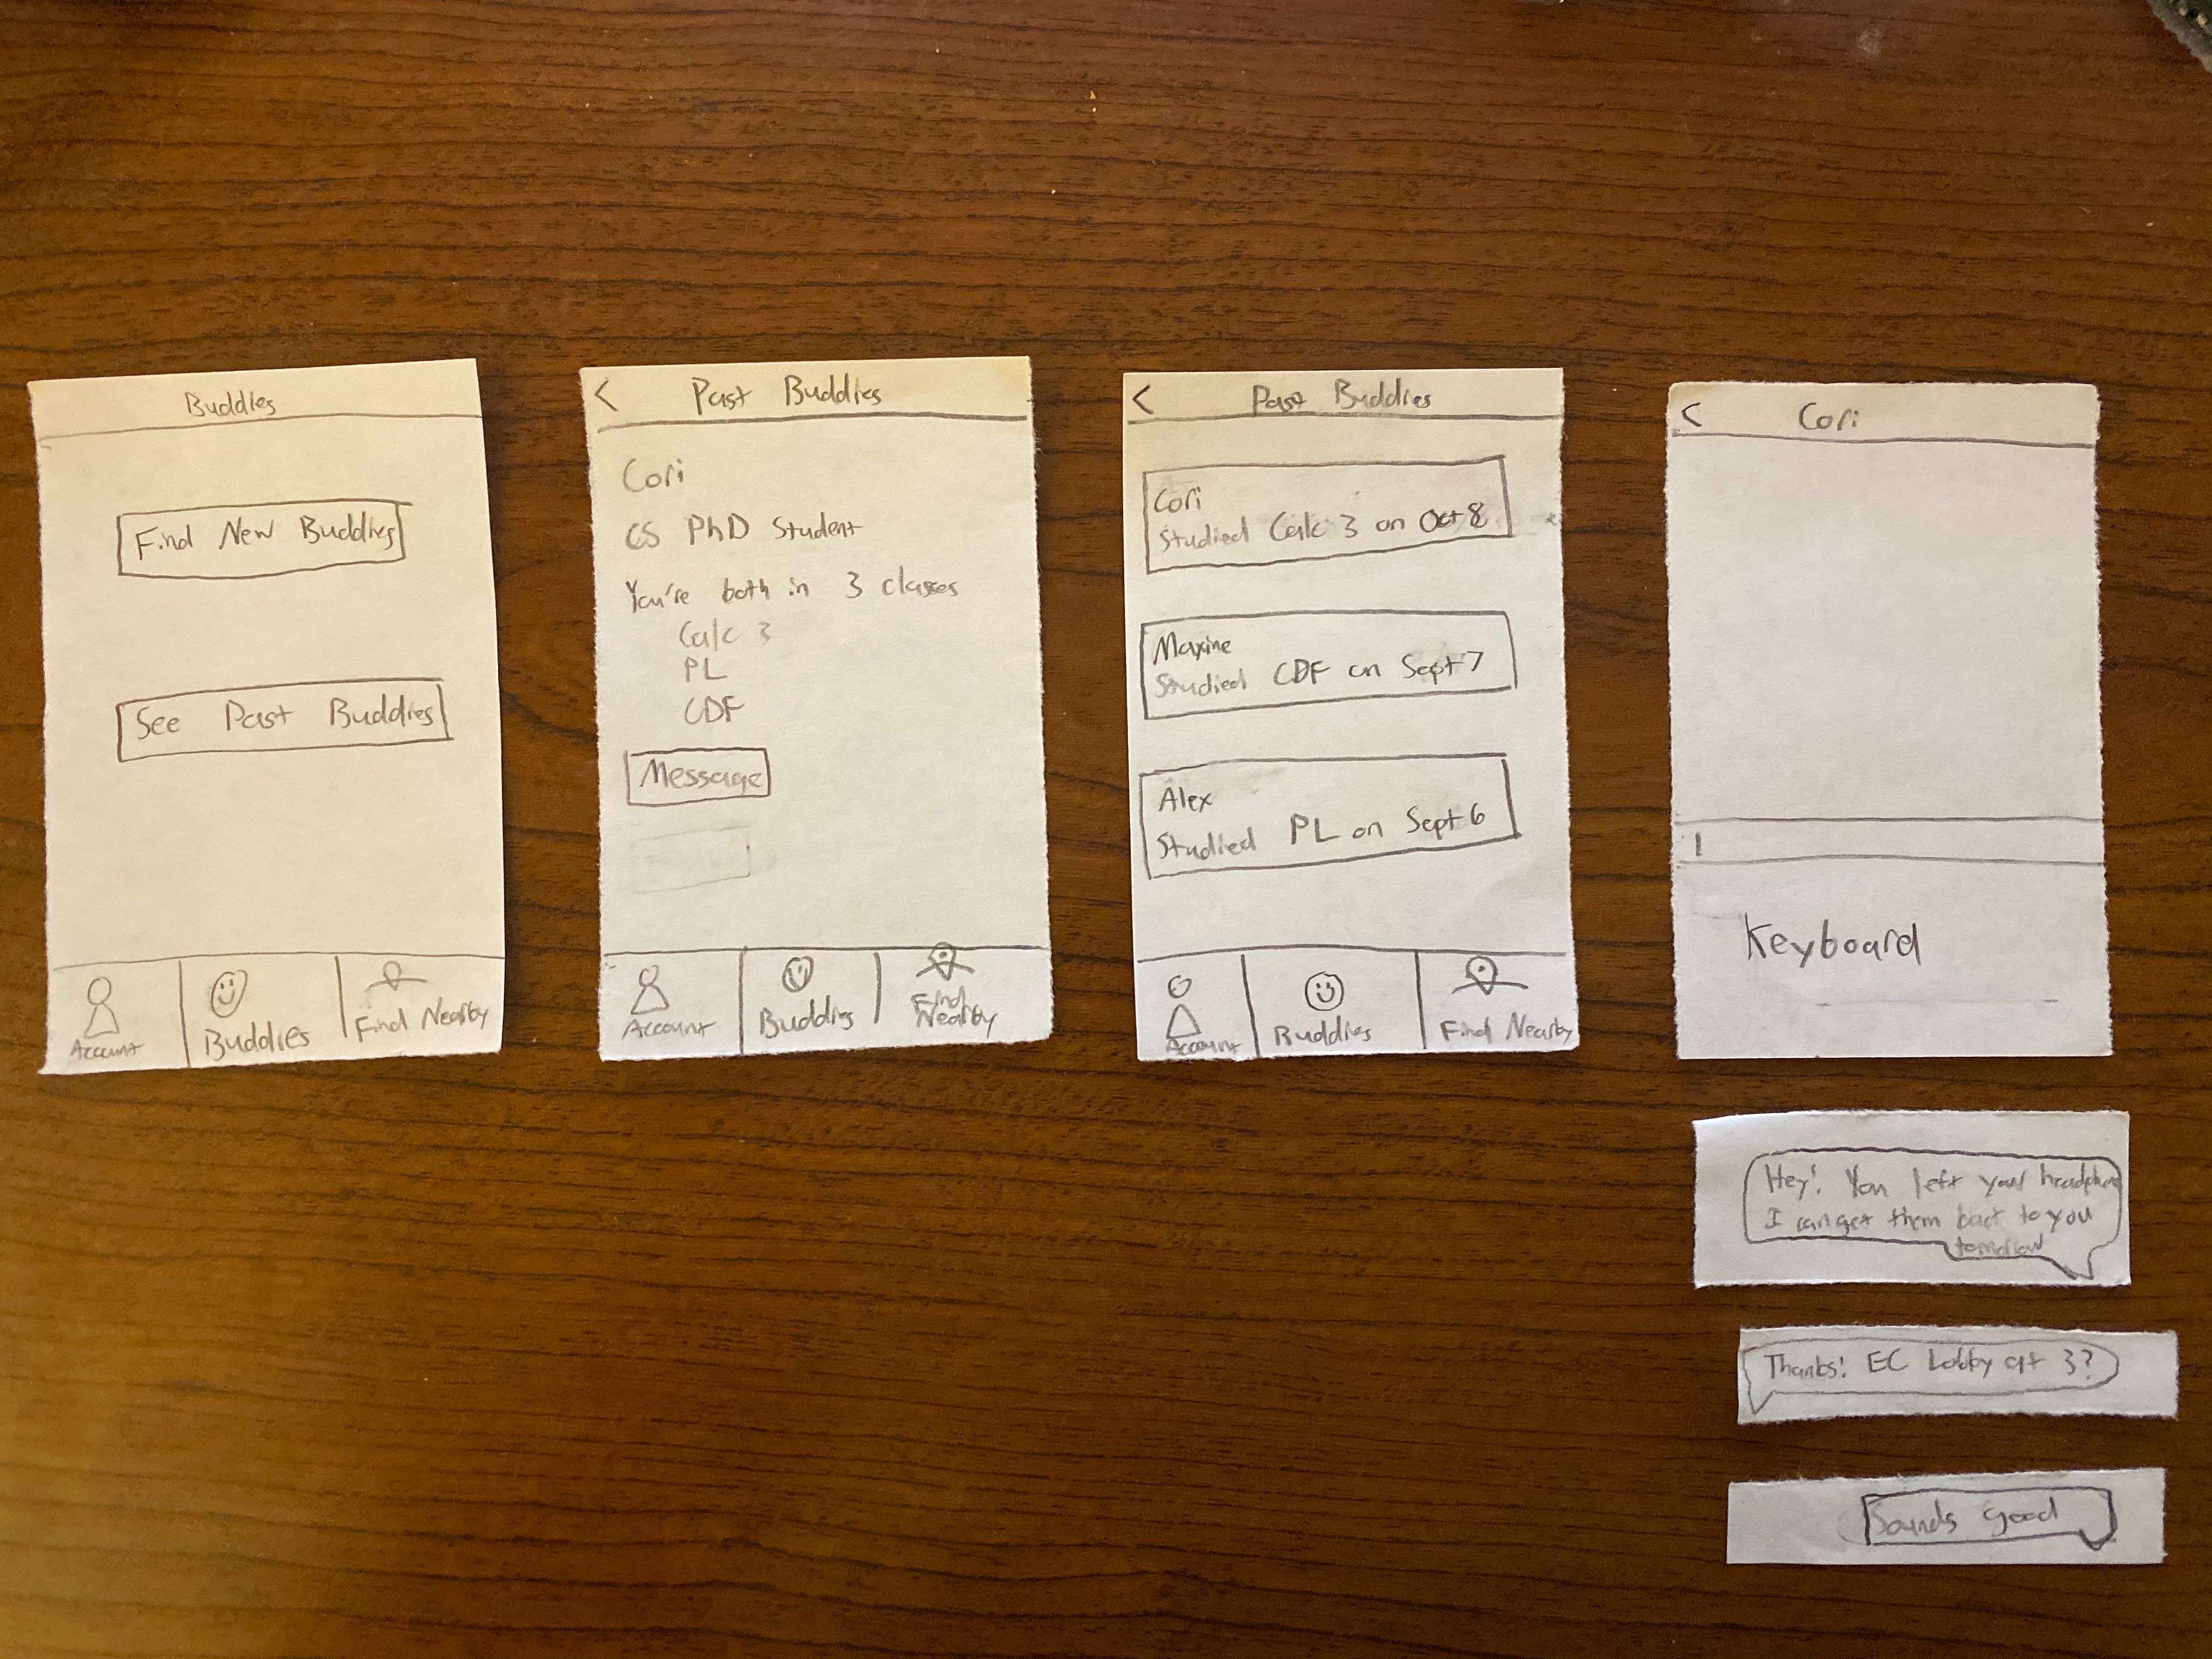 Buddies
Find New Buddies
See Past Buddies
Account
Buddies
Find Nearby
< Past Buddies
Cori
CS PhD Student
You're both in 3 classes
Calc 3
PL
CDF
Message
Account
Buddies
Find
Nearby
< Past Buddies
Cori
Studied Calc 3 on Oct 8
Maxine
Studied CDF on Sept 7
Alex
Studied PL on Sept 6
Account
Buddies
Find Nearby
< Cori
Keyboard
Hey! You left your headphone
I can get them back to you
tomorrow
Thanks! EC Lobby at 3?
Sounds good